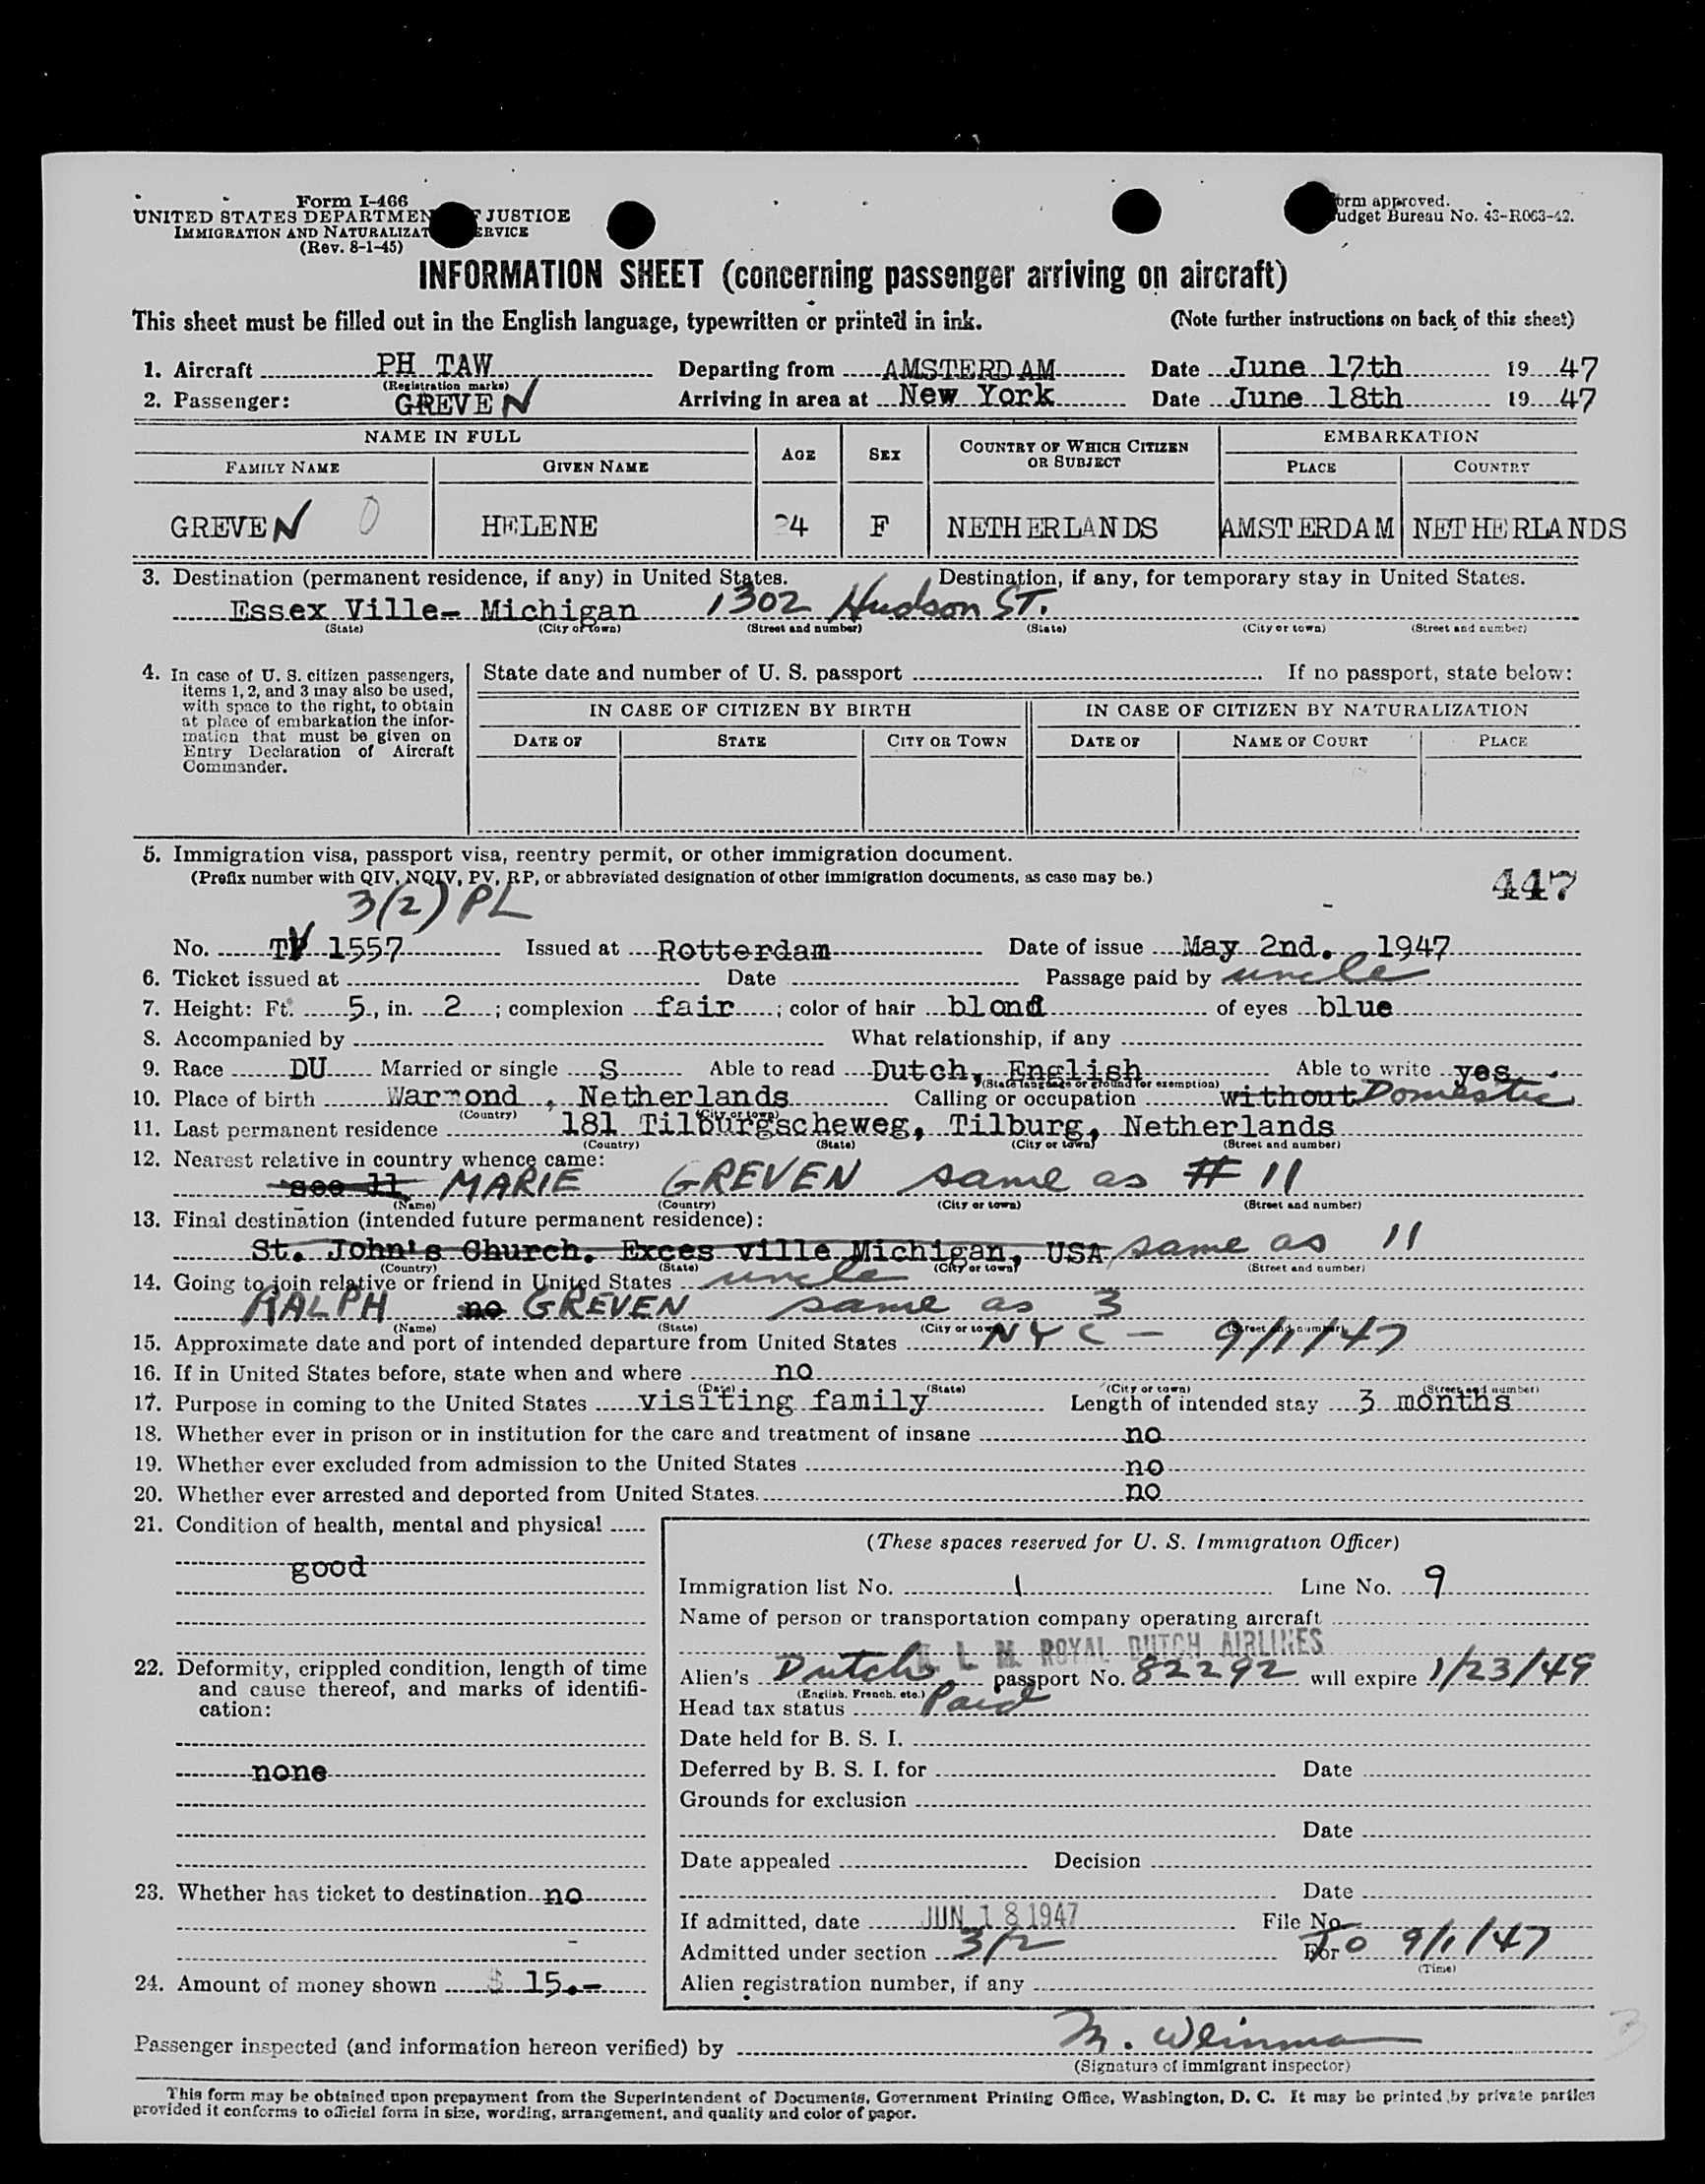 Form I-466
UNITED STATES DEPARTMEN JUSTICE
IMMIGRATION AND NATURALIZAT ERVICE
(Rev. 8-1-45)
orm approved.
udget Bureau No. 43-R063-42.
INFORMATION SHEET (concerning passenger arriving on aircraft)
This sheet must be filled out in the English language, typewritten or printed in ink. (Note further instructions on back of this sheet)
1. Aircraft PH TAW Departing from AMSTERDAM Date June 17th 19 47
(Registration marks)
2. Passenger: GREVEN Arriving in area at New York Date June 18th 19 47
NAME IN FULL AGE SEX COUNTRY OF WHICH CITIZEN OR SUBJECT EMBARKATION
FAMILY NAME GIVEN NAME PLACE COUNTRY
GREVEN 0 HELENE 24 F NETHERLANDS AMSTERDAM NETHERLANDS
3. Destination (permanent residence, if any) in United States. Destination, if any, for temporary stay in United States.
Essex Ville- Michigan 1302 Hudson ST.
(State) (City or town) (Street and number) (State) (City or town) (Street and number)
4. In case of U. S. citizen passengers, items 1, 2, and 3 may also be used, with space to the right, to obtain at place of embarkation the information that must be given on Entry Declaration of Aircraft Commander.
State date and number of U. S. passport If no passport, state below:
IN CASE OF CITIZEN BY BIRTH IN CASE OF CITIZEN BY NATURALIZATION
DATE OF STATE CITY OR TOWN DATE OF NAME OF COURT PLACE
5. Immigration visa, passport visa, reentry permit, or other immigration document.
(Prefix number with QIV, NQIV, PV, RP, or abbreviated designation of other immigration documents, as case may be.)
447
3(2) PL
No. TV 1557 Issued at Rotterdam Date of issue May 2nd. 1947
6. Ticket issued at Date Passage paid by uncle
7. Height: Ft. 5, in. 2; complexion fair; color of hair blond of eyes blue
8. Accompanied by What relationship, if any
9. Race DU Married or single S Able to read Dutch, English Able to write yes
(State language or ground for exemption)
10. Place of birth Warmond, Netherlands Calling or occupation without Domestic
(Country) (City or town)
11. Last permanent residence 181 Tilburgscheweg, Tilburg, Netherlands
(Country) (State) (City or town) (Street and number)
12. Nearest relative in country whence came:
see 11 MARIE GREVEN same as # 11
(Name) (Country) (City or town) (Street and number)
13. Final destination (intended future permanent residence):
St. John's Church. Exces ville Michigan, USA same as 11
(Country) (State) (City or town) (Street and number)
14. Going to join relative or friend in United States uncle
RALPH no GREVEN same as 3
(Name) (State) (City or town) (Street and number)
15. Approximate date and port of intended departure from United States NYC - 9/1/47
16. If in United States before, state when and where no
(Date) (State) (City or town) (Street and number)
17. Purpose in coming to the United States visiting family Length of intended stay 3 months
18. Whether ever in prison or in institution for the care and treatment of insane no
19. Whether ever excluded from admission to the United States no
20. Whether ever arrested and deported from United States. no
21. Condition of health, mental and physical
good
22. Deformity, crippled condition, length of time and cause thereof, and marks of identification:
none
23. Whether has ticket to destination no
24. Amount of money shown $ 15.-
(These spaces reserved for U. S. Immigration Officer)
Immigration list No. 1 Line No. 9
Name of person or transportation company operating aircraft
K. L. M. ROYAL DUTCH AIRLINES
Alien's Dutch passport No. 82292 will expire 1/23/49
(English, French, etc.)
Head tax status Paid
Date held for B. S. I.
Deferred by B. S. I. for Date
Grounds for exclusion
Date
Date appealed Decision
Date
If admitted, date JUN 18 1947 File No.
Admitted under section 3/2 For To 9/1/47
(Time)
Alien registration number, if any
Passenger inspected (and information hereon verified) by M. Weinman
(Signature of immigrant inspector)
This form may be obtained upon prepayment from the Superintendent of Documents, Government Printing Office, Washington, D. C. It may be printed by private parties
provided it conforms to official form in size, wording, arrangement, and quality and color of paper.